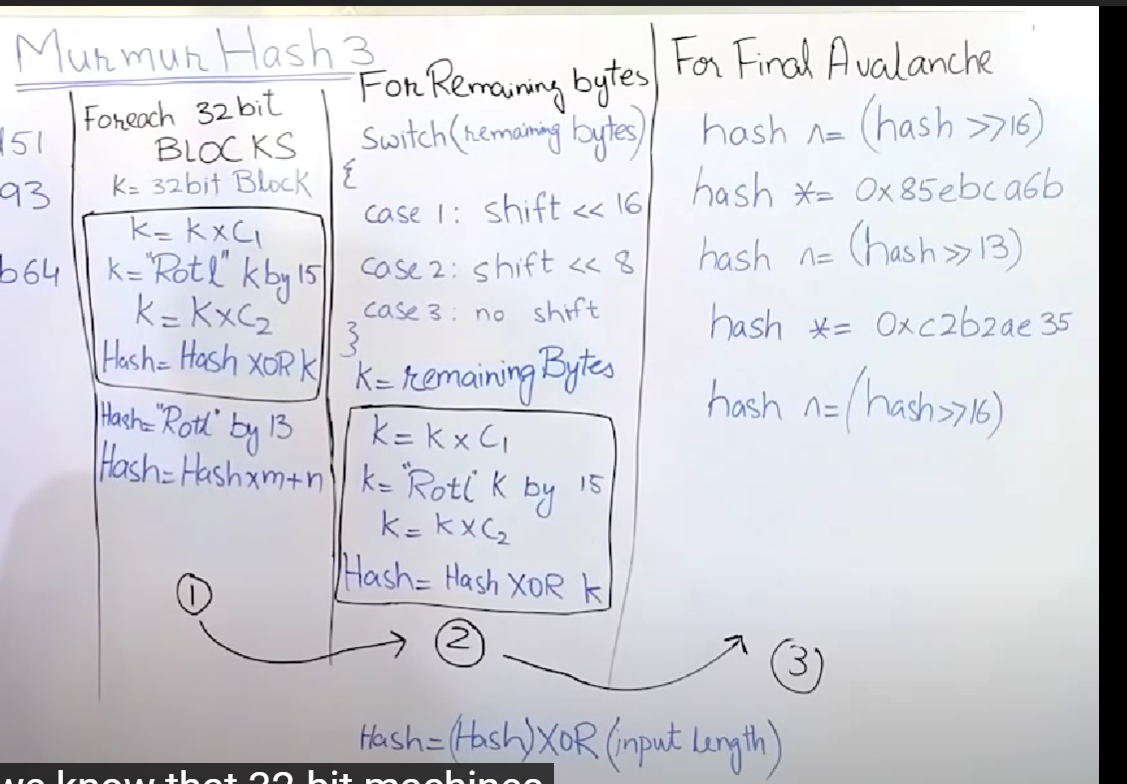 MurmurHash3
151
93
b64
Foreach 32bit
BLOCKS
k= 32bit Block
k= k×C1
k="Rotl" k by 15
k= k×C2
Hash= Hash XOR k
Hash="Rotl" by 13
Hash=Hash×m+n
①
For Remaining bytes
switch(remaining bytes)
{
case 1: shift << 16
case 2: shift << 8
case 3: no shift
}
k= remaining Bytes
k= k×C1
k= "Rotl" k by 15
k= k×C2
Hash= Hash XOR k
②
For Final Avalanche
hash ^= (hash >>16)
hash *= 0x85ebca6b
hash ^= (hash >> 13)
hash *= 0xc2b2ae35
hash ^= (hash>>16)
③
Hash=(Hash)XOR(input Length)